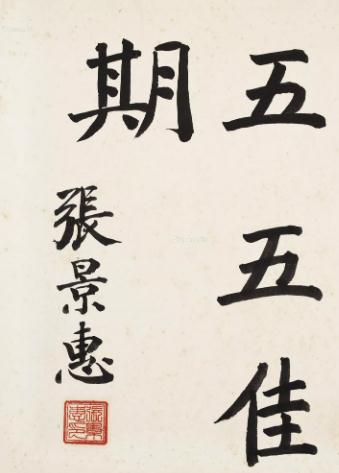 五五佳
期
張景惠